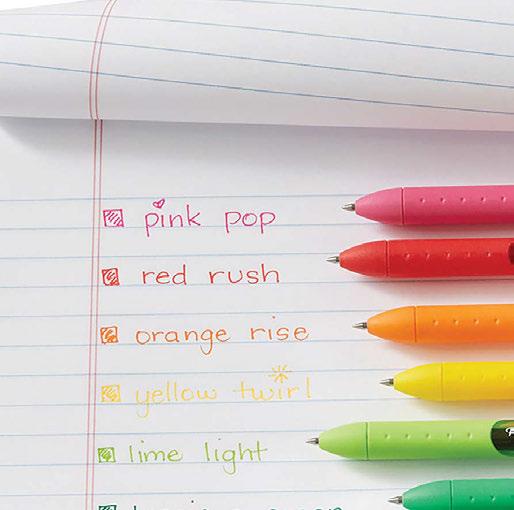 pink pop
red rush
orange rise
yellow twirl
lime light